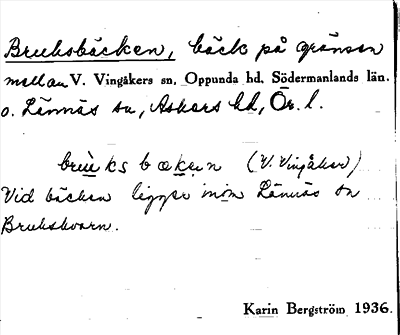 Bruksbäcken, bäck på gränsen
mellan V. Vingåkers sn, Oppunda hd, Södermanlands län.
o. Lännäs sn, Askers hd, Ör. l.
bru̇ks bæken (V. Vingåker)
Vid bäcken ligger inom Lännäs sn
Brukskvarn.
Karin Bergström 1936.